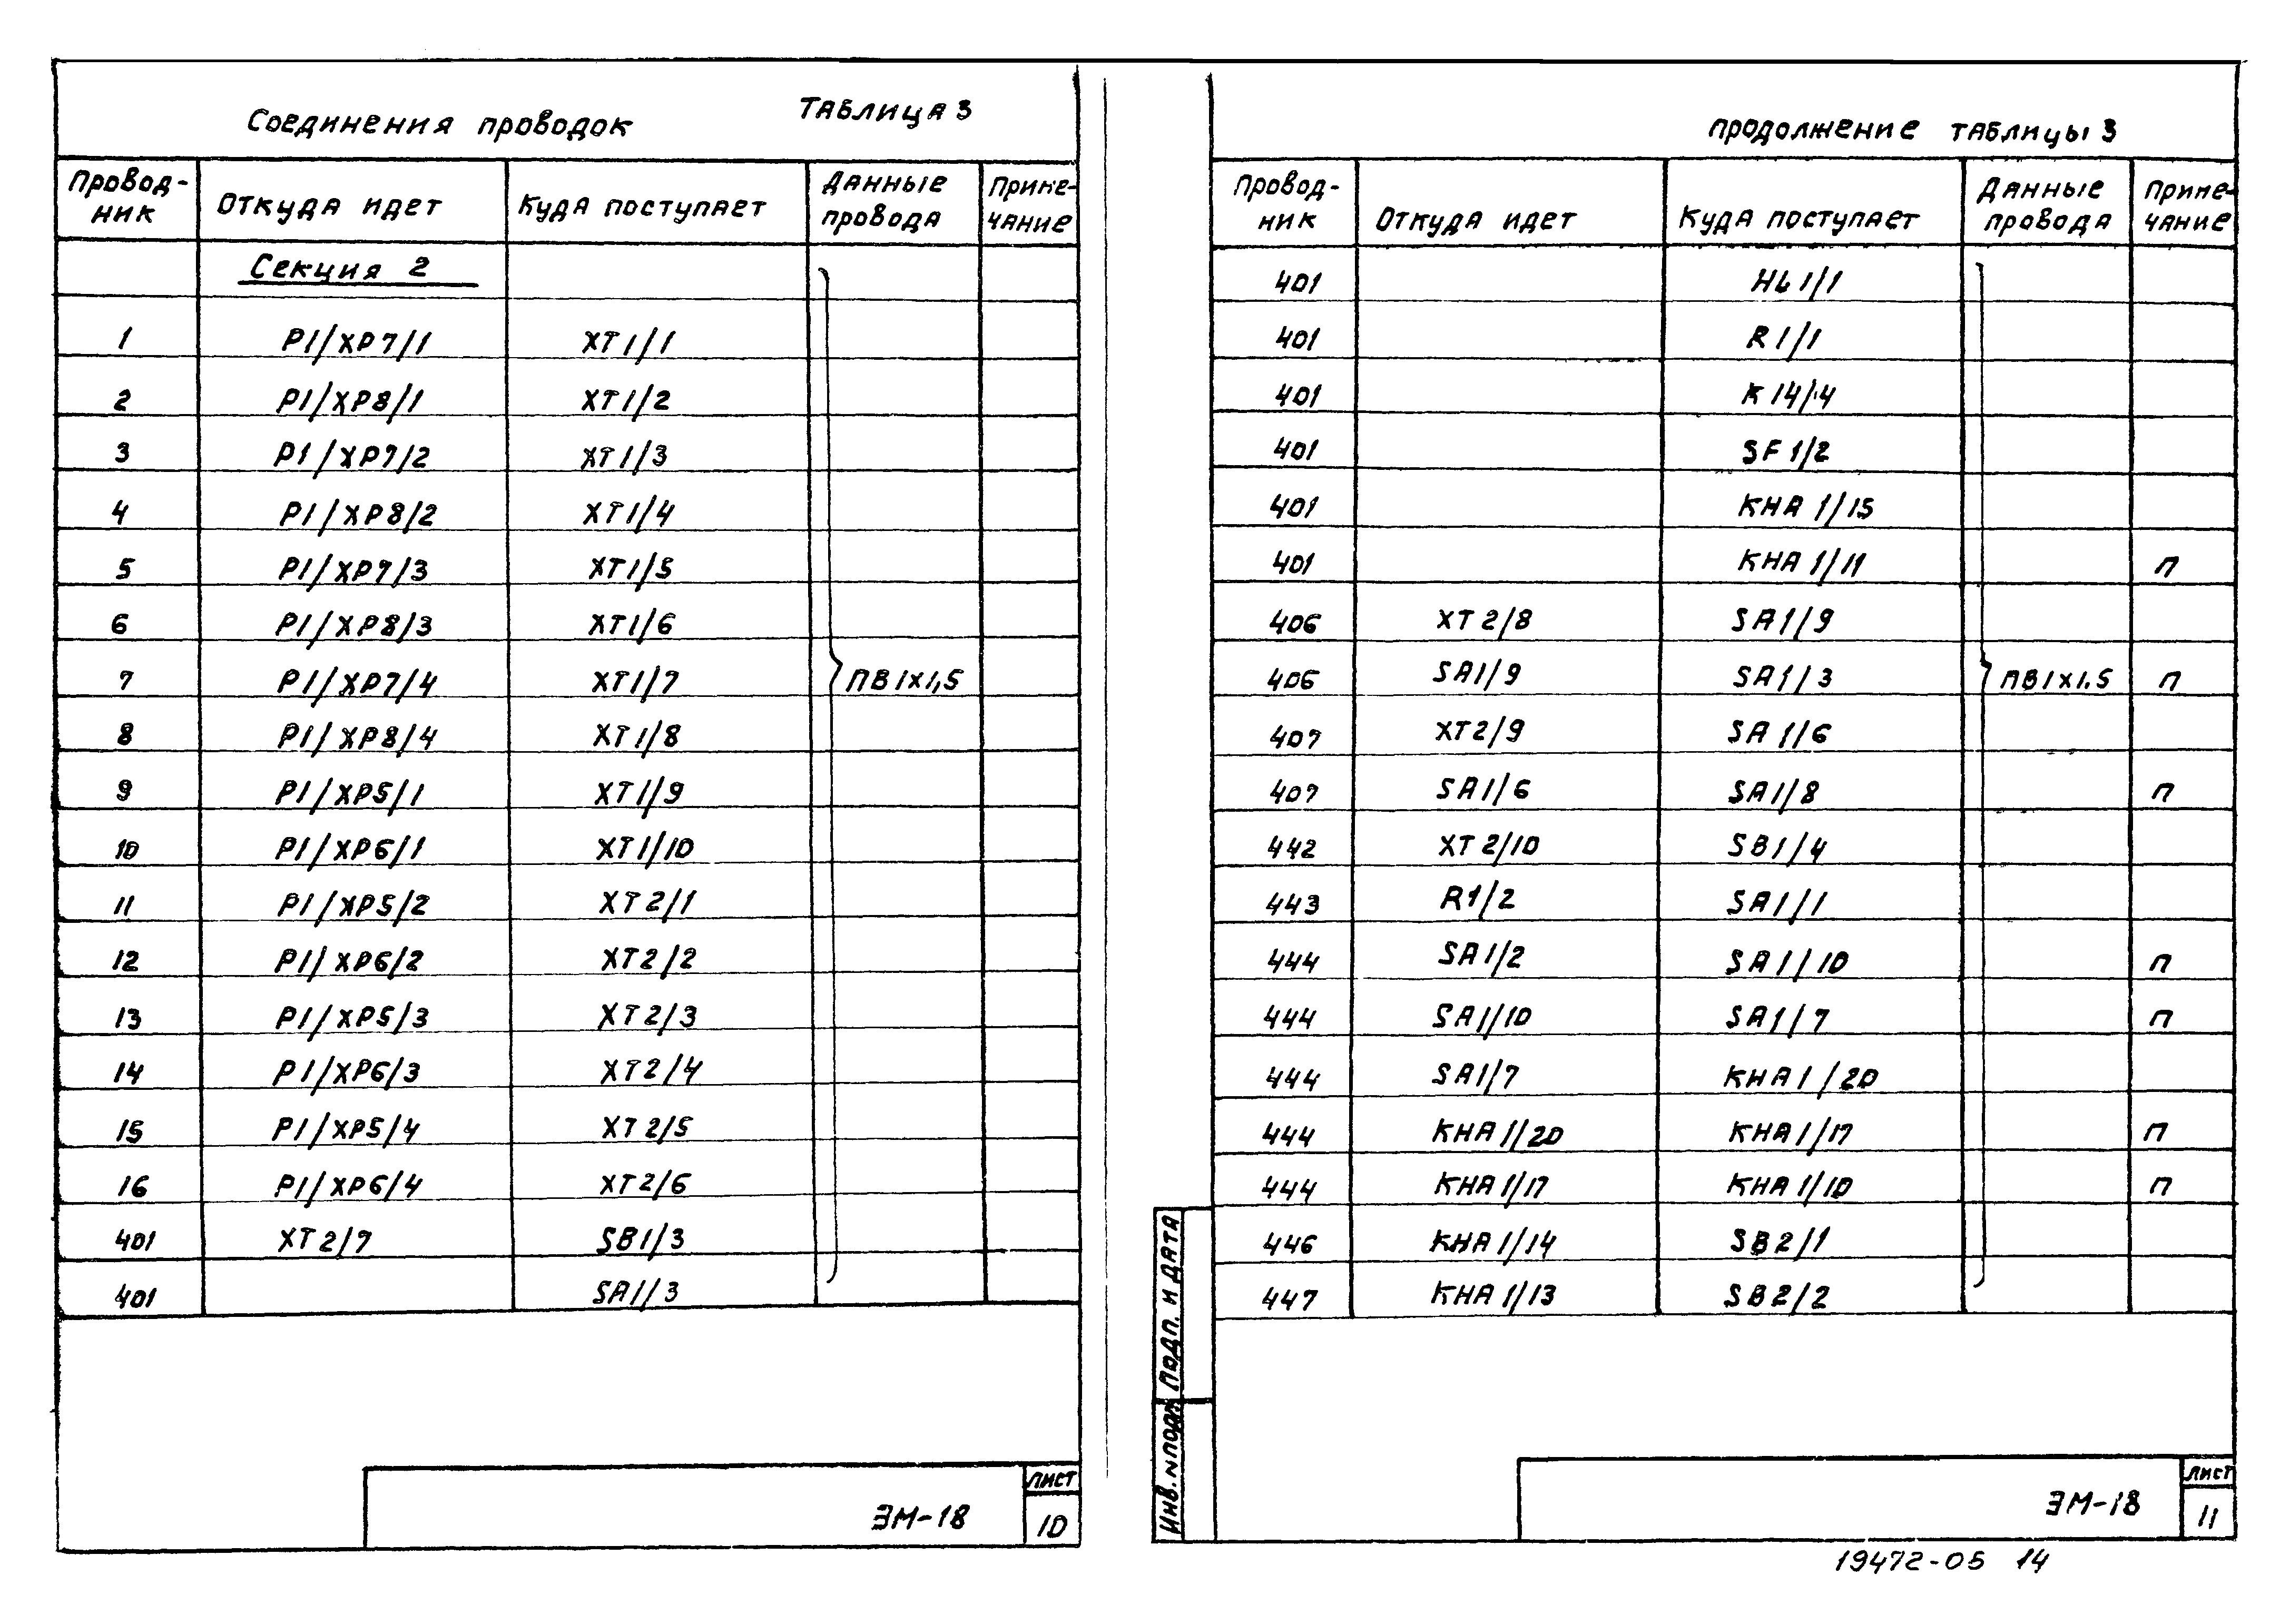 Таблица 3
Соединения проводок
Провод-ник | Откуда идет | Куда поступает | Данные провода | Приме-чание
Секция 2
1 | P1/XP7/1 | XT1/1
2 | P1/XP8/1 | XT1/2
3 | P1/XP7/2 | XT1/3
4 | P1/XP8/2 | XT1/4
5 | P1/XP7/3 | XT1/5
6 | P1/XP8/3 | XT1/6
7 | P1/XP7/4 | XT1/7 | ПВ1х1,5
8 | P1/XP8/4 | XT1/8
9 | P1/XP5/1 | XT1/9
10 | P1/XP6/1 | XT1/10
11 | P1/XP5/2 | XT2/1
12 | P1/XP6/2 | XT2/2
13 | P1/XP5/3 | XT2/3
14 | P1/XP6/3 | XT2/4
15 | P1/XP5/4 | XT2/5
16 | P1/XP6/4 | XT2/6
401 | XT2/7 | SB1/3
401 | SA1/3
ЭМ-18
Лист
10
продолжение таблицы 3
Провод-ник | Откуда идет | Куда поступает | Данные провода | Приме-чание
401 | HL1/1
401 | R1/1
401 | K14/4
401 | SF1/2
401 | KHA1/15
401 | KHA1/11 | п
406 | XT2/8 | SA1/9
406 | SA1/9 | SA1/3 | ПВ1х1.5 | п
407 | XT2/9 | SA1/6
407 | SA1/6 | SA1/8 | п
442 | XT2/10 | SB1/4
443 | R1/2 | SA1/1
444 | SA1/2 | SA1/10 | п
444 | SA1/10 | SA1/7 | п
444 | SA1/7 | KHA1/20
444 | KHA1/20 | KHA1/17 | п
444 | KHA1/17 | KHA1/10 | п
446 | KHA1/14 | SB2/1
447 | KHA1/13 | SB2/2
Подп. и дата
Инв. № подл
ЭМ-18
Лист
11
19472-05 14